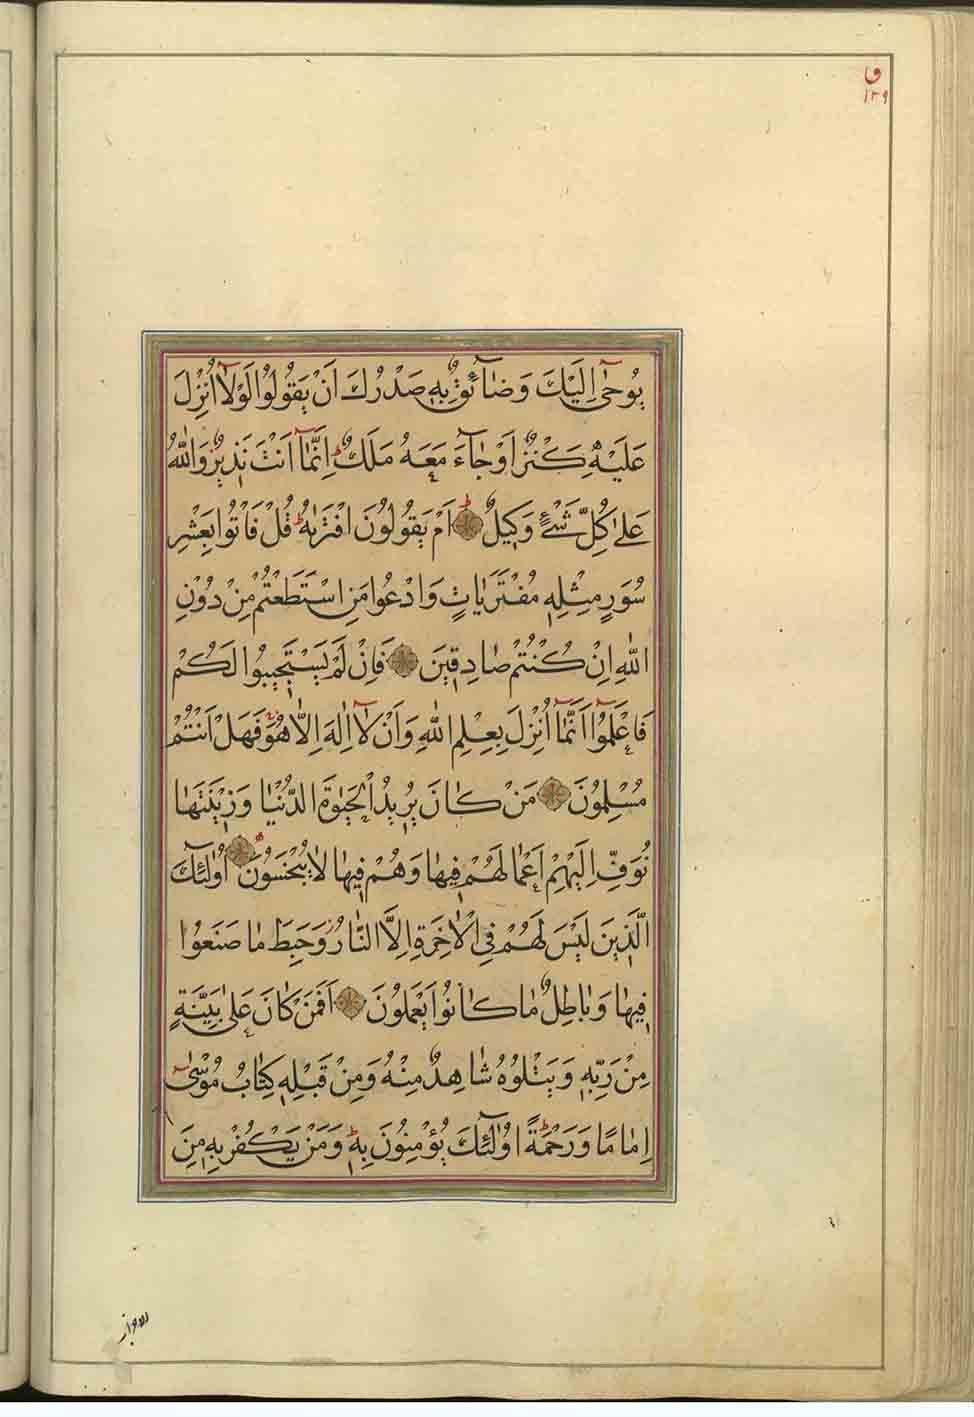 ق
١٣٩
يُوحٰى اِلَيْكَ وَضَآئِقٌ بِهٖ صَدْرُكَ اَنْ يَقُولُوا لَوْلَآ اُنْزِلَ
عَلَيْهِ كَنْزٌ اَوْ جَآءَ مَعَهُ مَلَكٌ ط اِنَّمَآ اَنْتَ نَذِيرٌ ز وَاللّٰهُ
عَلٰى كُلِّ شَىْءٍ وَكِيلٌ ط اَمْ يَقُولُونَ افْتَرٰيهُ ط قُلْ فَاْتُوا بِعَشْرِ
سُوَرٍ مِثْلِهٖ مُفْتَرَيَاتٍ وَادْعُوا مَنِ اسْتَطَعْتُمْ مِنْ دُونِ
اللّٰهِ اِنْ كُنْتُمْ صَادِقِينَ فَاِنْ لَمْ يَسْتَجِيبُوا لَكُمْ
فَاعْلَمُوٓا اَنَّمَآ اُنْزِلَ بِعِلْمِ اللّٰهِ وَاَنْ لَآ اِلٰهَ اِلَّا هُوَ فَهَلْ اَنْتُمْ
مُسْلِمُونَ مَنْ كَانَ يُرِيدُ الْحَيٰوةَ الدُّنْيَا وَزِينَتَهَا
نُوَفِّ اِلَيْهِمْ اَعْمَالَهُمْ فِيهَا وَهُمْ فِيهَا لَا يُبْخَسُونَ اُولٰٓئِكَ
الَّذِينَ لَيْسَ لَهُمْ فِى الْاٰخِرَةِ اِلَّا النَّارُ ز وَحَبِطَ مَا صَنَعُوا
فِيهَا وَبَاطِلٌ مَا كَانُوا يَعْمَلُونَ اَفَمَنْ كَانَ عَلٰى بَيِّنَةٍ
مِنْ رَبِّهٖ وَيَتْلُوهُ شَاهِدٌ مِنْهُ وَمِنْ قَبْلِهٖ كِتَابُ مُوسٰٓى
اِمَامًا وَرَحْمَةً ط اُولٰٓئِكَ يُؤْمِنُونَ بِهٖ ط وَمَنْ يَكْفُرْ بِهٖ مِنَ